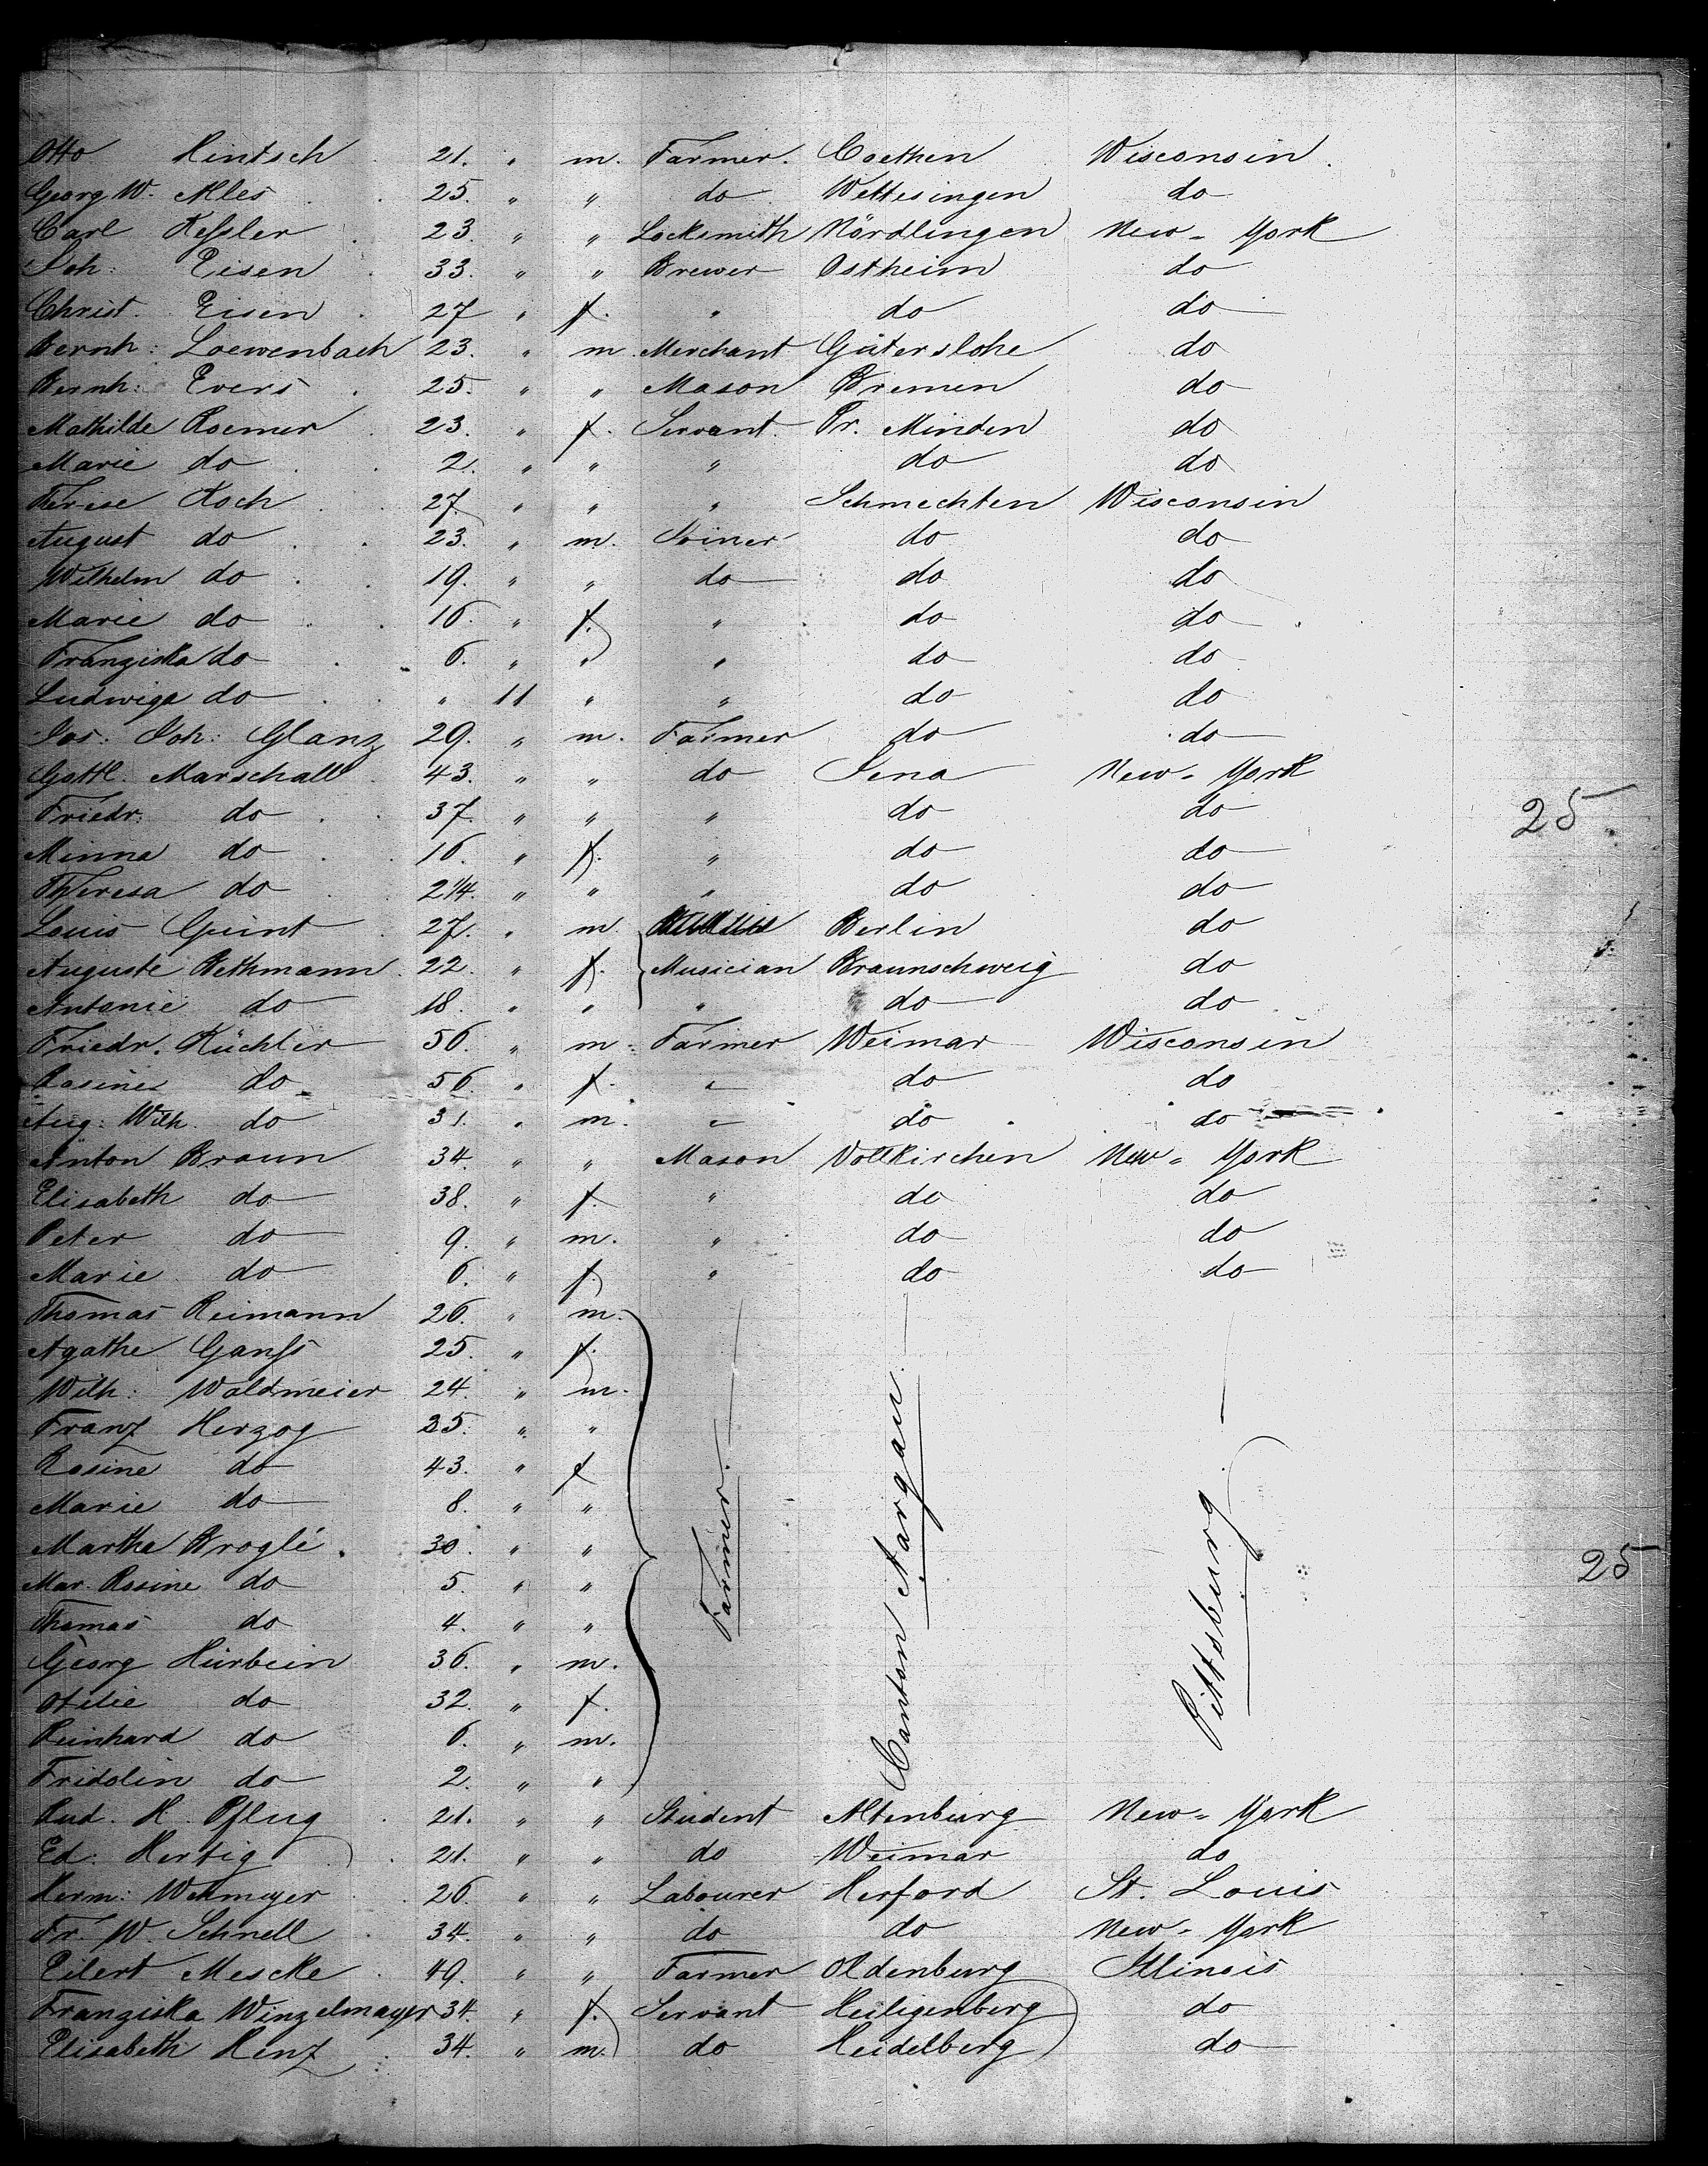 Otto Hintsch 21. " m. Farmer. Coethen Wisconsin.
Georg W. Alles 25. " " do Wettesingen do
Carl Keſsler 23. " " Locksmith Nördlingen New-York
Joh: Eisen 33. " " Brewer Ostheim do
Christ. Eisen 27 " f. " do do
Bernh: Loewenbach 23. " m. Merchant Gütersloh​e do
Bernh: Evers 25. " " Mason Bremen do
Mathilde Roemer 23. " f. Servant. Pr. Minden do
Marie do 2. " " " do do
Terese Koch 27. " " " Schmechten Wisconsin
August do 23. " m. Joiner do do
Wilhelm do 19. " " do do do
Marie do 16. " f. " do do
Franziska do 6. " " " do do
Ludwiga do " 11 " " do do
Jos: Joh: Glanz 29. " m. Farmer do do
Gottl. Marschall 43. " " do Jena New-York
Friedr. do 37. " " " do do
Minna do 16. " f. " do do
Theresa do 2 1/4. " " " do do
Louis Guint 27. " m. Berlin do
Auguste Bethmann 22. " f. Musician Braunschweig do
Antonie do 18. " " " do do
Friedr. Küchler 56. " m. Farmer Weimar Wisconsin
Rosine do 56. " f. " do do
Aug: Wilh. do 31. " m. " do do
Anton Braun 34. " " Mason Vollkirchen New-York
Elisabeth do 38. " f. " do do
Peter do 9. " m. " do do
Marie do 6. " f. " do do
Thomas Reimann 26. " m. Farmer. Canton Aargau. Pittsburg
Agathe Ganſs 25. " f.
Wilh: Waldmeier 24. " m.
Franz Herzog 25. " "
Rosine do 43. " f
Marie do 8. " "
Martha Broglé. 30. " "
Mar. Rosine do 5. " "
Thomas do 4. " "
Georg Hürbein 36. " m.
Otilie do 32. " f.
Reinhard do 6. " m.
Fridolin do 2. " "
Rud. H. Pflug 21. " " Student Altenburg New-York
Ed: Hertig 21. " " do Weimar do
Herm: Wehmeyer 26. " " Labourer Herford St. Louis
Fr. W. Schnell 34. " " do do New-York
Eilert Mescke 49. " " Farmer Oldenburg Illinois
Franziska Winzelmayer 34. " f. Servant Heiligenberg do
Elisabeth Henz 34. " m. do Heidelberg do
25.
25